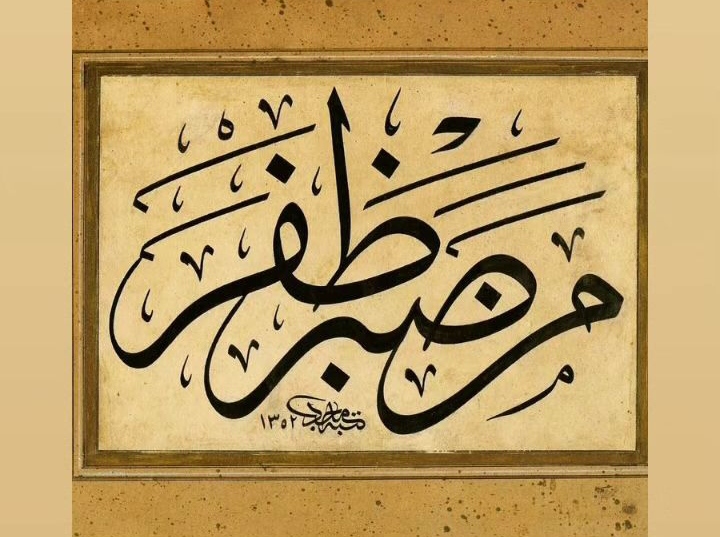 من صبر ظفر
كتبه ماجد ١٣٥٢